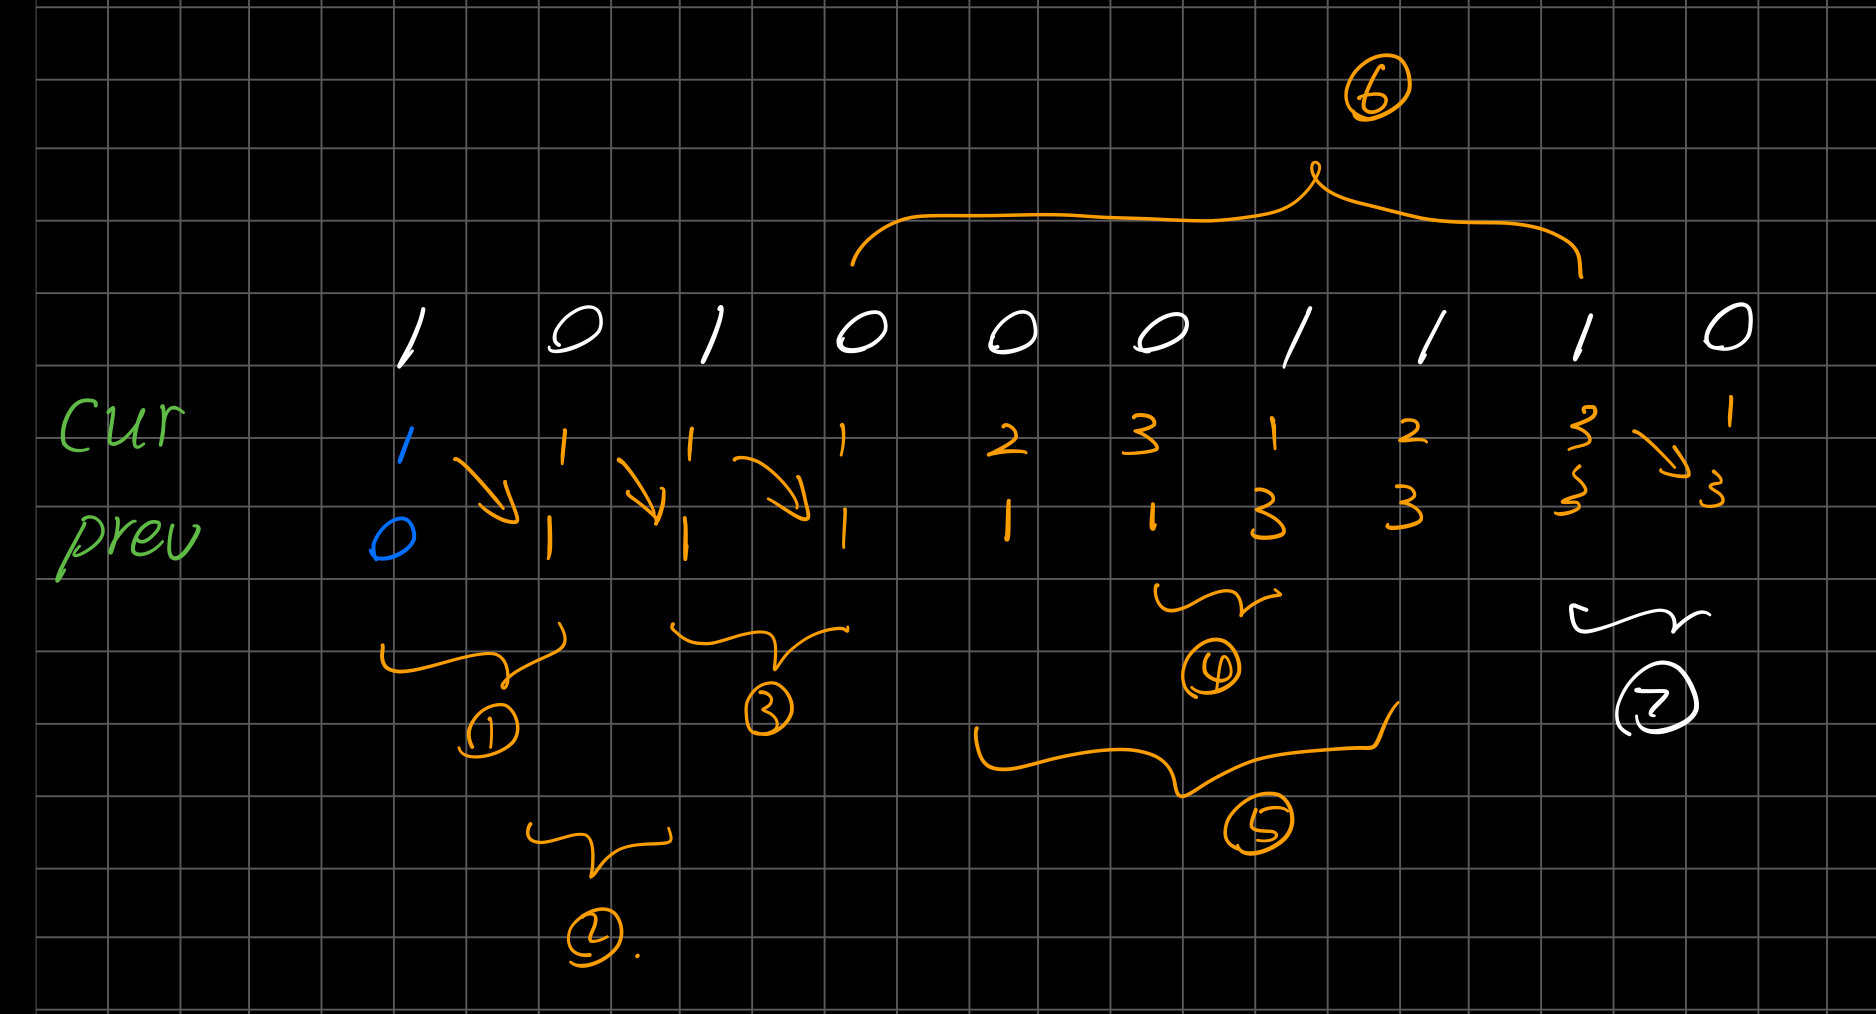 ⑥
1 0 1 0 0 0 1 1 1 0
cur 1 1 1 1 2 3 1 2 3 1
prev 0 1 1 1 1 1 3 3 3 3
④
⑦
③
①
⑤
②.